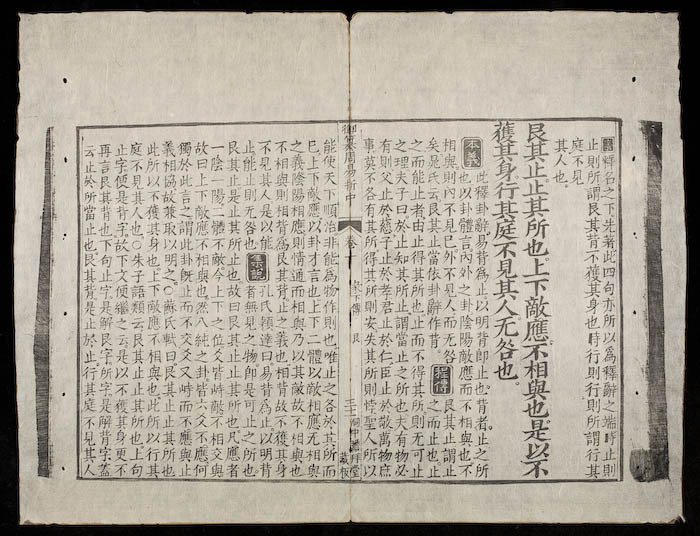 釋名之下先著此四句亦所以爲釋辭之端時止則
止則所謂艮其背不獲其身也時行則行則所謂行其
庭不見
其人也
艮其止止其所也上下敵應不相與也是以不
獲其身行其庭不見其人无咎也
本義 此釋卦辭易背爲止以明背即止也背者止之所
也以卦體言內外之卦陰陽敵應而不相與也不
相與則內不見己外不見人而无咎
矣晁氏云艮其止當依卦辭作背
程傳 艮其止謂止
之而止也止
之而能止者由止得其所也止而不得其所則无可止
之理夫子曰於止知其所止謂當止之所也夫有物必
有則父止於慈子止於孝君止於仁臣止於敬萬物庶
事莫不各有其所得其所則安失其所則悖聖人所以
御纂周易折中 卷十 彖下傳 艮 三十七 藏板
能使天下順治非能爲物作則也唯止之各於其所而
已上下敵應以卦才言也上下二體以敵相應无相與
之義陰陽相應則情通而相與乃以其敵故不相與也
不相與則相背爲艮其背止之義也相背故不獲其身
不見其人是以能
止能止則无咎也
集說 孔氏穎達曰易背爲止以明背
者無見之物即是可止之所也
艮其止是止其所也故曰艮其止止其所也凡應者
一陰一陽二體不敵今上下之位爻皆峙敵不相交與
故曰上下敵應不相與也然八純之卦皆六爻不應何
獨於此言之謂此卦既止而不交爻又峙而不應與止
義相協故兼取以明之○蘇氏軾曰艮其止止其所也
此所以不獲其身也上下敵應不相與也此所以行其
庭不見其人也○朱子語類云艮其止止其所也上句
止字便是背字故下文便繼之云是以不獲其身更不
再言艮其背也下句止字是解艮字所字是解背字蓋
云止於所當止也艮其背是止於止行其庭不見其人